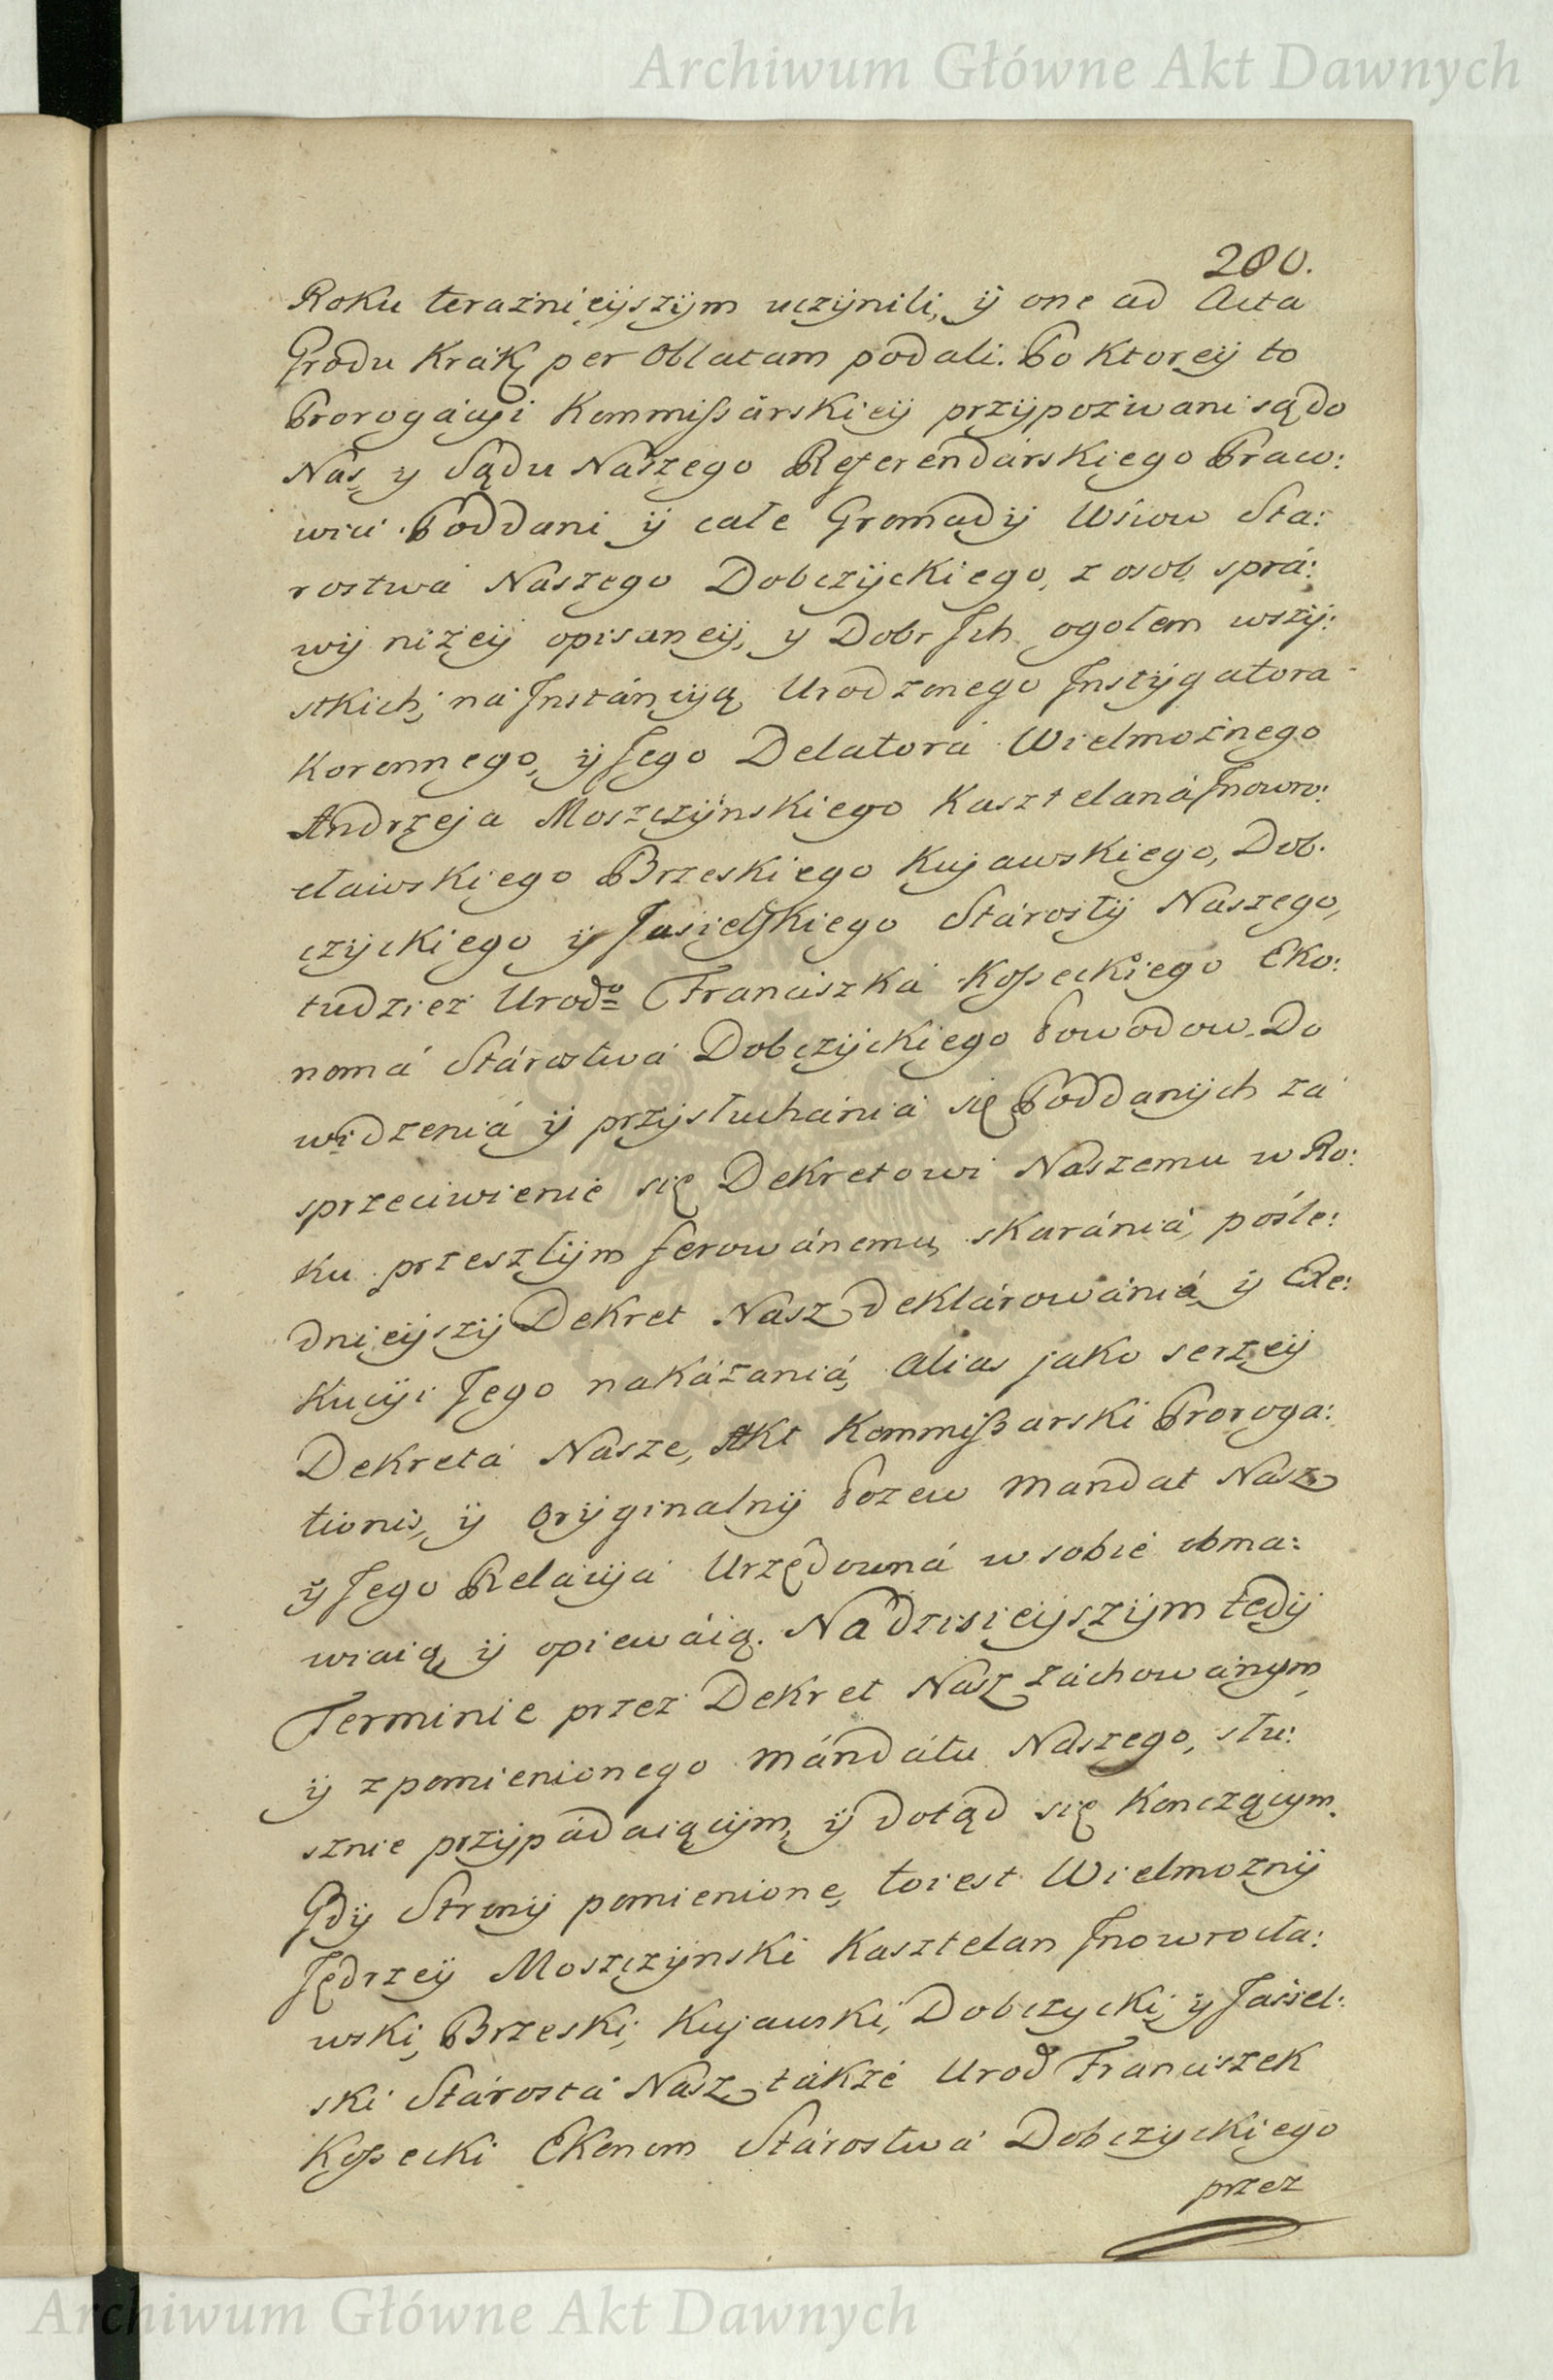 Archiwum Główne Akt Dawnych
280.
Roku teraznieyszym uczynili, y one ad Acta
Grodu Krak: per Oblatam podali. Po ktorey to
Prorogacyi Kommissárskiey przypozwani są do
Nas, y Sądu Nászego Referendárskiego Praco:
wici Poddani y całe Gromady Wsiow Sta:
rostwá Nászego Dobczyckiego, z osob sprá:
wy niżey opisaney, y Dobr Ich ogołem wszy:
stkich, ná Instáncyą Urodzonego Instygatora
Koronnego, y Jego Delatorá Wielmożnego
Andrzeja Moszczyńskiego Kasztelaná Inowro:
cławskiego Brzeskiego Kujawskiego, Dob:
czyckiego y Jasielskiego Stárosty Nászego,
tudziez Urodo Franciszká Kosseckiego Eko:
nomá Stárostwá Dobczyckiego Powodow. Do
widzeniá y przysłuchániá się Poddanych zá
sprzeciwienie się Dekretowi Nászemu w Ro:
ku przeszłym ferowánemu, skarániá, pośle:
dnieyszy Dekret Nász deklárowániá, y Exe:
kucyi Jego nakázaniá, alias jako serzey
Dekretá Násze, Akt Kommissarski Proroga:
tionis, y Oryginalny Pozew Mandat Nász
y Jego Relácyá Urzędowná w sobie obma:
wiaią, y opiewáią. Na dzisieyszym tedy
Terminie przez Dekret Nász záchowánym,
y z pomienionego Mándátu Nászego, słu:
sznie przypádaiącym, y dotąd się kończącym.
Gdy Strony pomienione, to iest Wielmożny
Jędrzey Moszczyński Kasztelan Inowrocła:
wski, Brzeski, Kujawski, Dobczycki, y Jasiel:
ski Stárostá Nász, tákże Urod Franciszek
Kossecki Ekonom Stárostwá Dobczyckiego
przez
Archiwum Główne Akt Dawnych